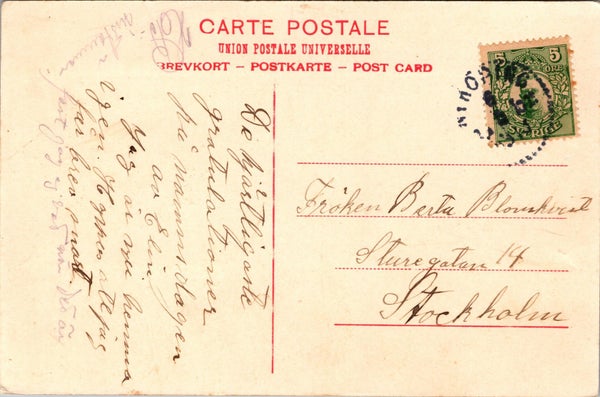 CARTE POSTALE
UNION POSTALE UNIVERSELLE
BREVKORT – POSTKARTE – POST CARD
5 5
ÖRE
SVERIGE
De hjärtligaste
gratulationer
på namnsdagen
av Elin.
Jag är nu hemma
igen. Hoppas att jag
får brev snart
Fröken Berta Blomkvist
Sturegatan 14
Stockholm